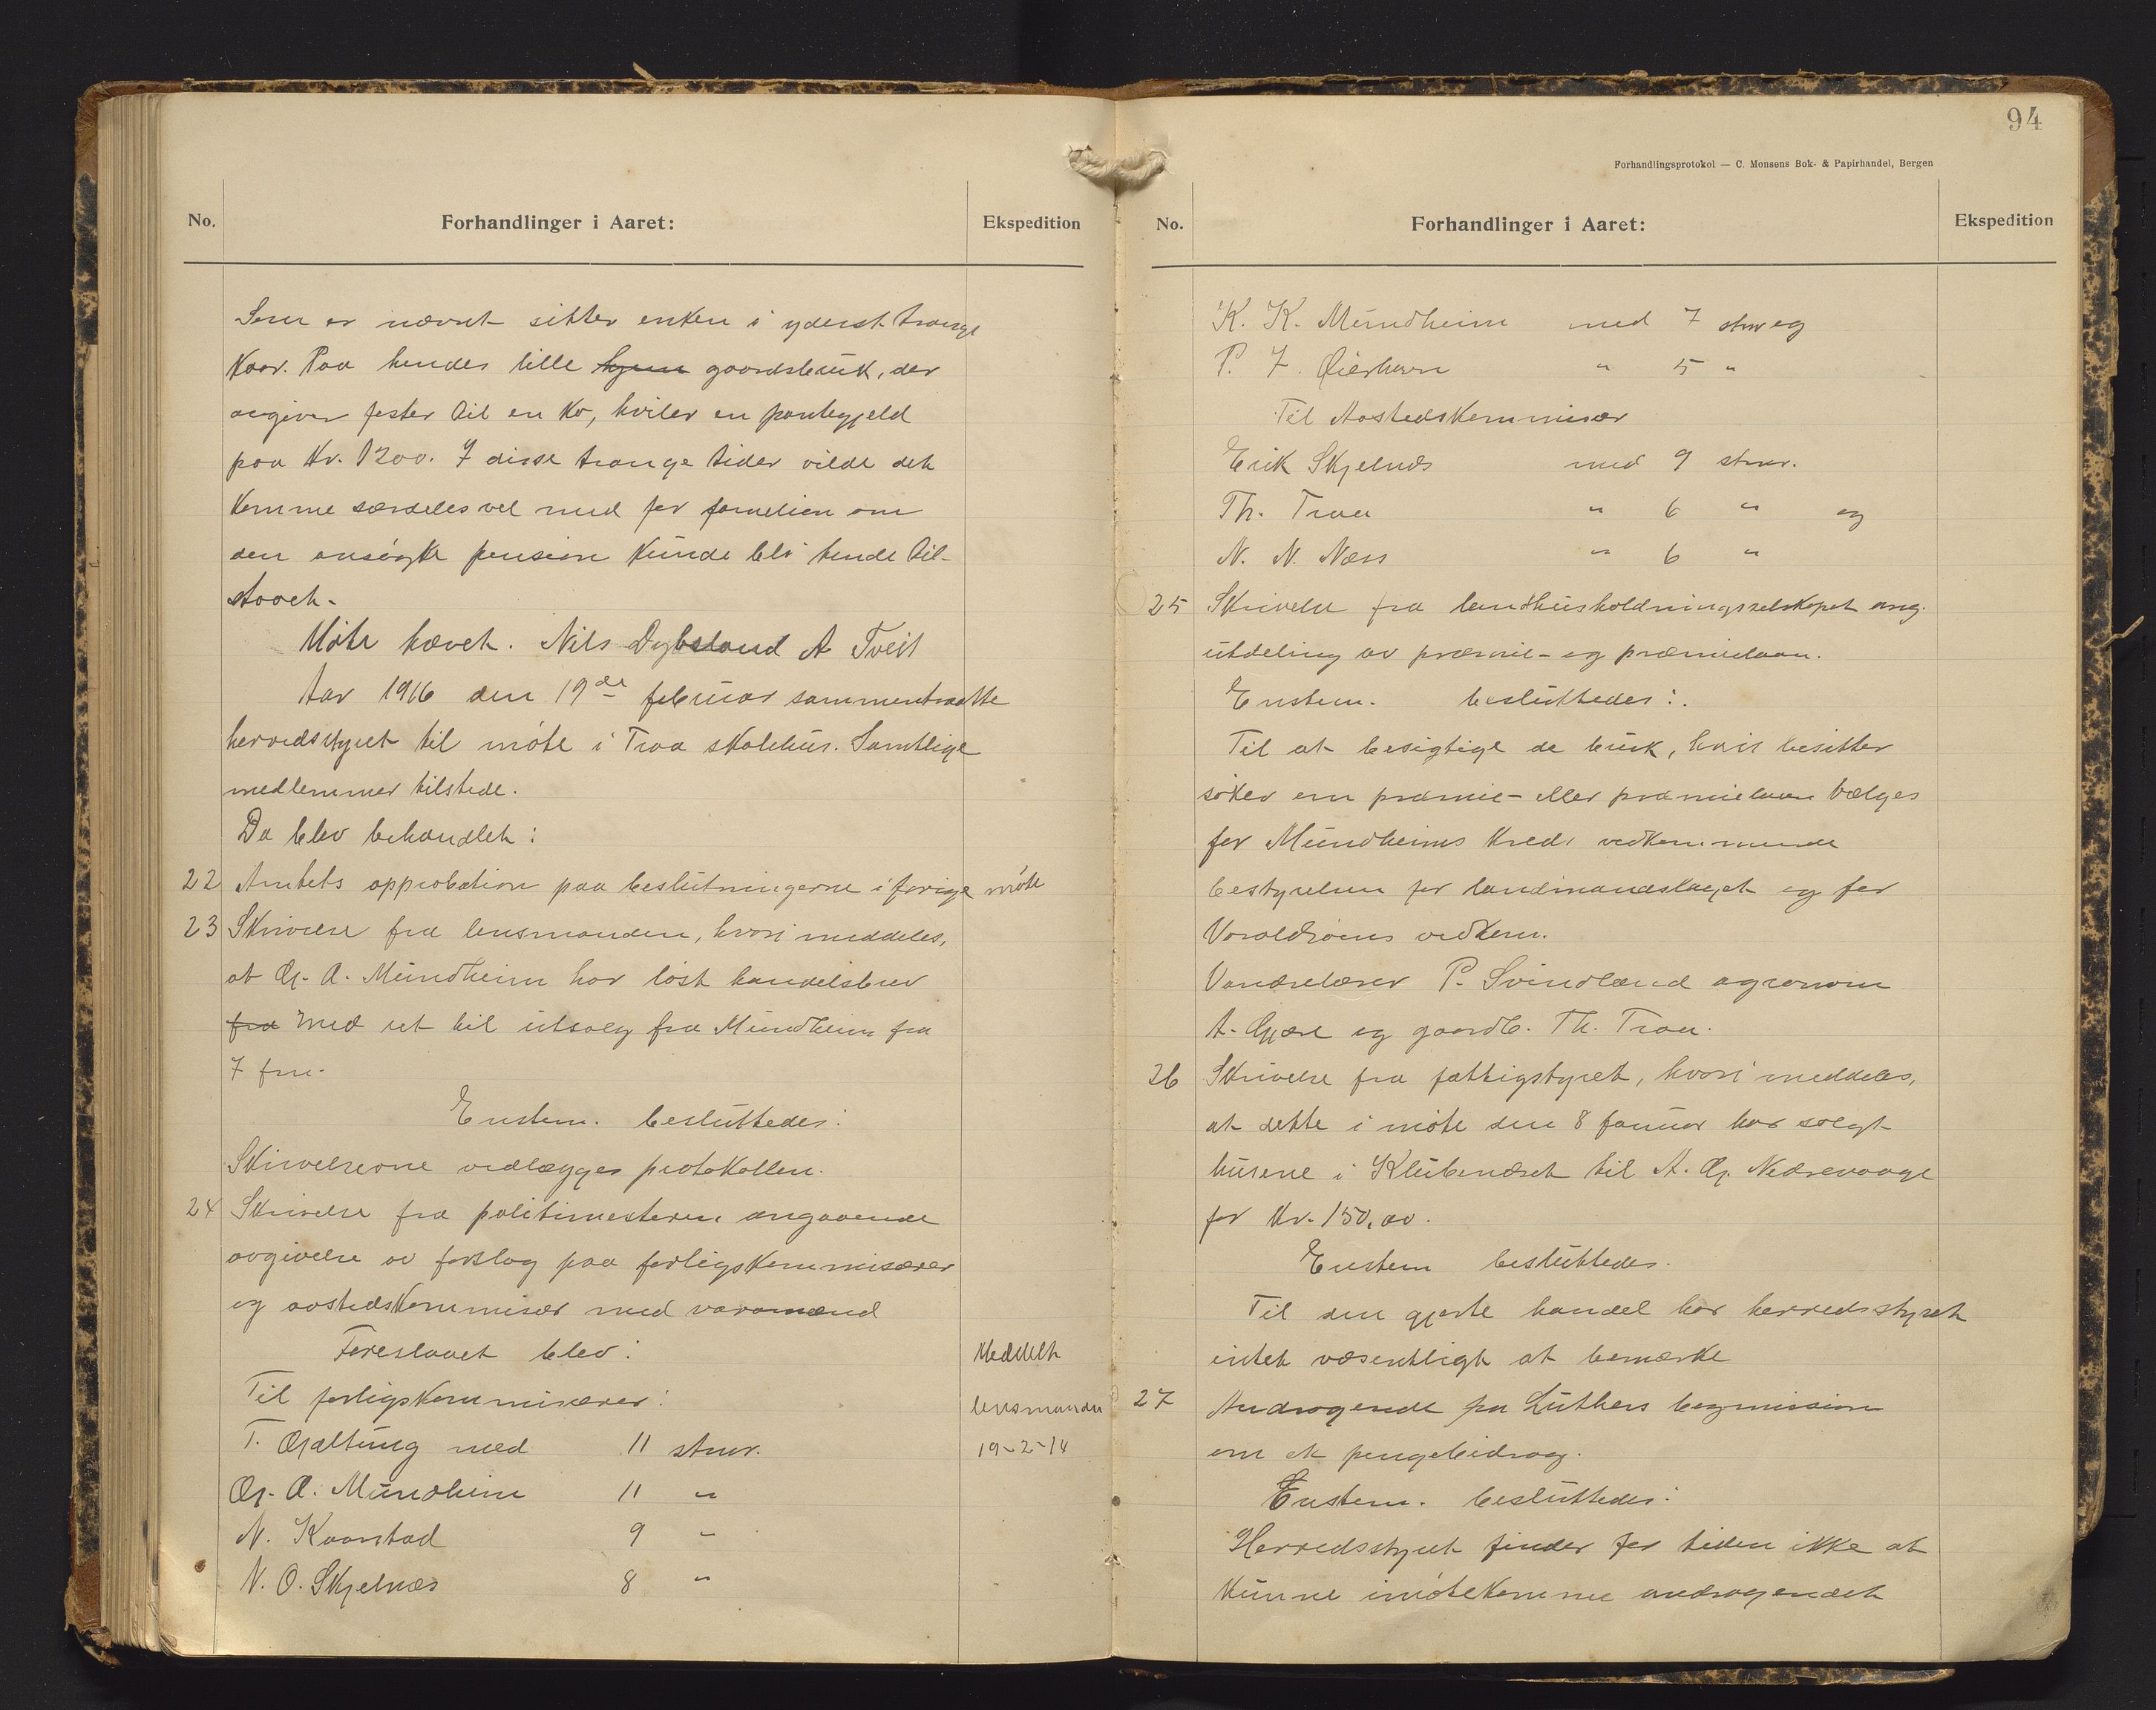 No.
Forhandlinger i Aaret:
Ekspedition
Som er nævnt sitter enken i yderst trange
kaar. Paa hendes lille hjem gaardsbruk, der
avgiver foster til en ko, hviler en pantegjeld
paa Kr. 1200. I disse trange tider vilde det
komme særdeles vel med for familien om
den ansøgte pension kunde bli hende til-
staaet.
Møte hævet. Nils Dybsland A Tveit
Aar 1916 den 19de februar sammentraatte
herredsstyret til møte i Traa skolehus. Samtlige
medlemmer tilstede.
Da blev behandlet:
22 Amtets approbation paa beslutningerne i forrige møte
23 Skrivelse fra lensmanden, hvori meddeles,
at G. A. Mundheim har løst handelsbrev
fra med ret til utsalg fra Mundheim fra
7 fm.
Enstem. besluttedes:
Skrivelserne vedlægges protokollen.
24 Skrivelse fra politimesteren angaaende
avgivelse av forslag paa forligskommisærer
og aastedskommisær med varamænd
Foreslaaet blev:
Meddelt
Til forligskommisærer:
lensmanden
T. Gjeltung med 11 stmr.
19-2-14
G. A. Mundheim 11 "
N. Kaarstad 9 "
N. O. Skjelnæs 8 "
94
Forhandlingsprotokol — C. Monsens Bok- & Papirhandel, Bergen
No.
Forhandlinger i Aaret:
Ekspedition
K. K. Mundheim med 7 stmr og
P. J. Øierhavn " 5 "
Til Aastedskommisær
Erik Skjelnæs med 9 stmr.
Th. Traa " 6 " og
N. N. Næss " 6 "
25 Skrivelse fra landhusholdningsselskapet ang.
utdeling av præmie- og præmielaan.
Enstem. besluttedes:
Til at besigtige de bruk, hvis besitter
søker om præmie- eller præmielaan vælges
for Mundheims kreds vedkommende
bestyrelsen for landmandslaget og for
Varaldsøens vedkom.
Vandrelærer P. Svindland agronom
A. Gjære og gaardb. Th. Traa.
26 Skrivelse fra fattigstyret, hvori meddeles,
at dette i møte den 8 januar har solgt
husene i Klubenæset til A. G. Nedrevaage
for Kr. 150,00.
Enstem besluttedes.
Til den gjorte handel har herredsstyret
intet væsentligt at bemærke
27 Andragende fra Luthers bogmission
om et pengebidrag.
Enstem. besluttedes:
Herredsstyret finder for tiden ikke at
kunne imøtekomme andragendet